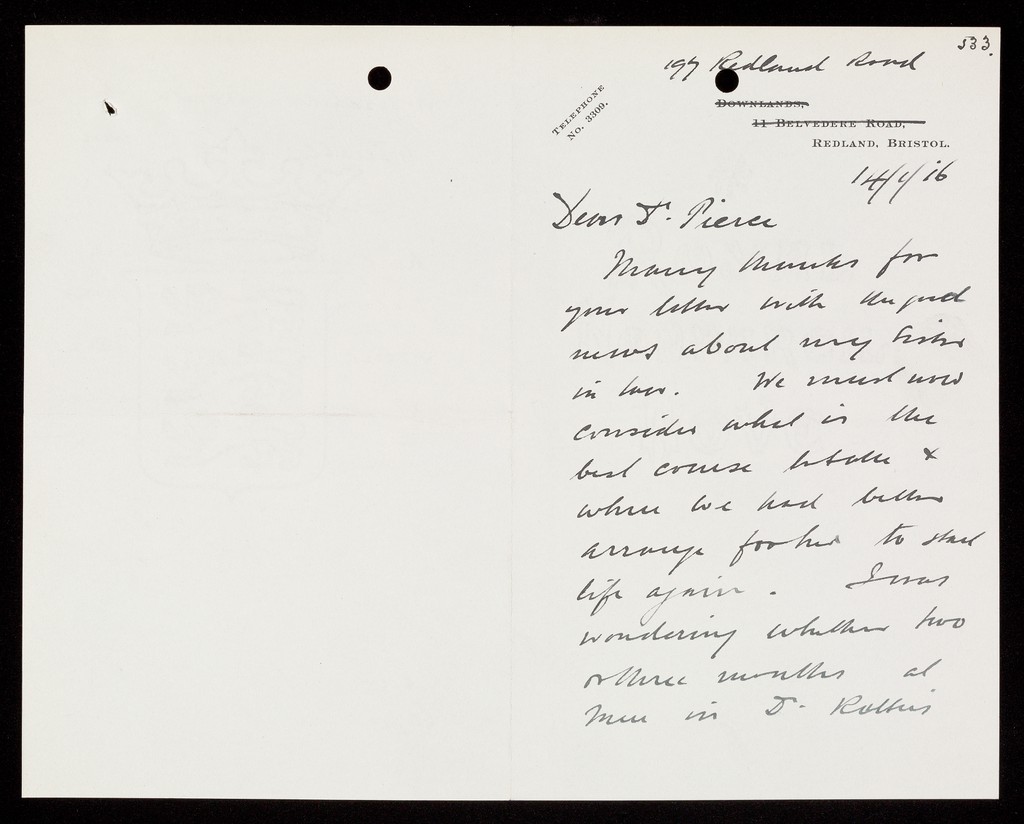 533.
197 Redland Road
TELEPHONE
NO. 3309.
DOWNLANDS,
11 BELVEDERE ROAD,
REDLAND, BRISTOL.
14/1/16
Dear Dr. Pierce
Many thanks for
your letter with the good
news about my Sister
in law. We must now
consider what is the
best course to take &
where we had better
arrange for her to start
life again. I was
wondering whether two
or three months at
in Dr.